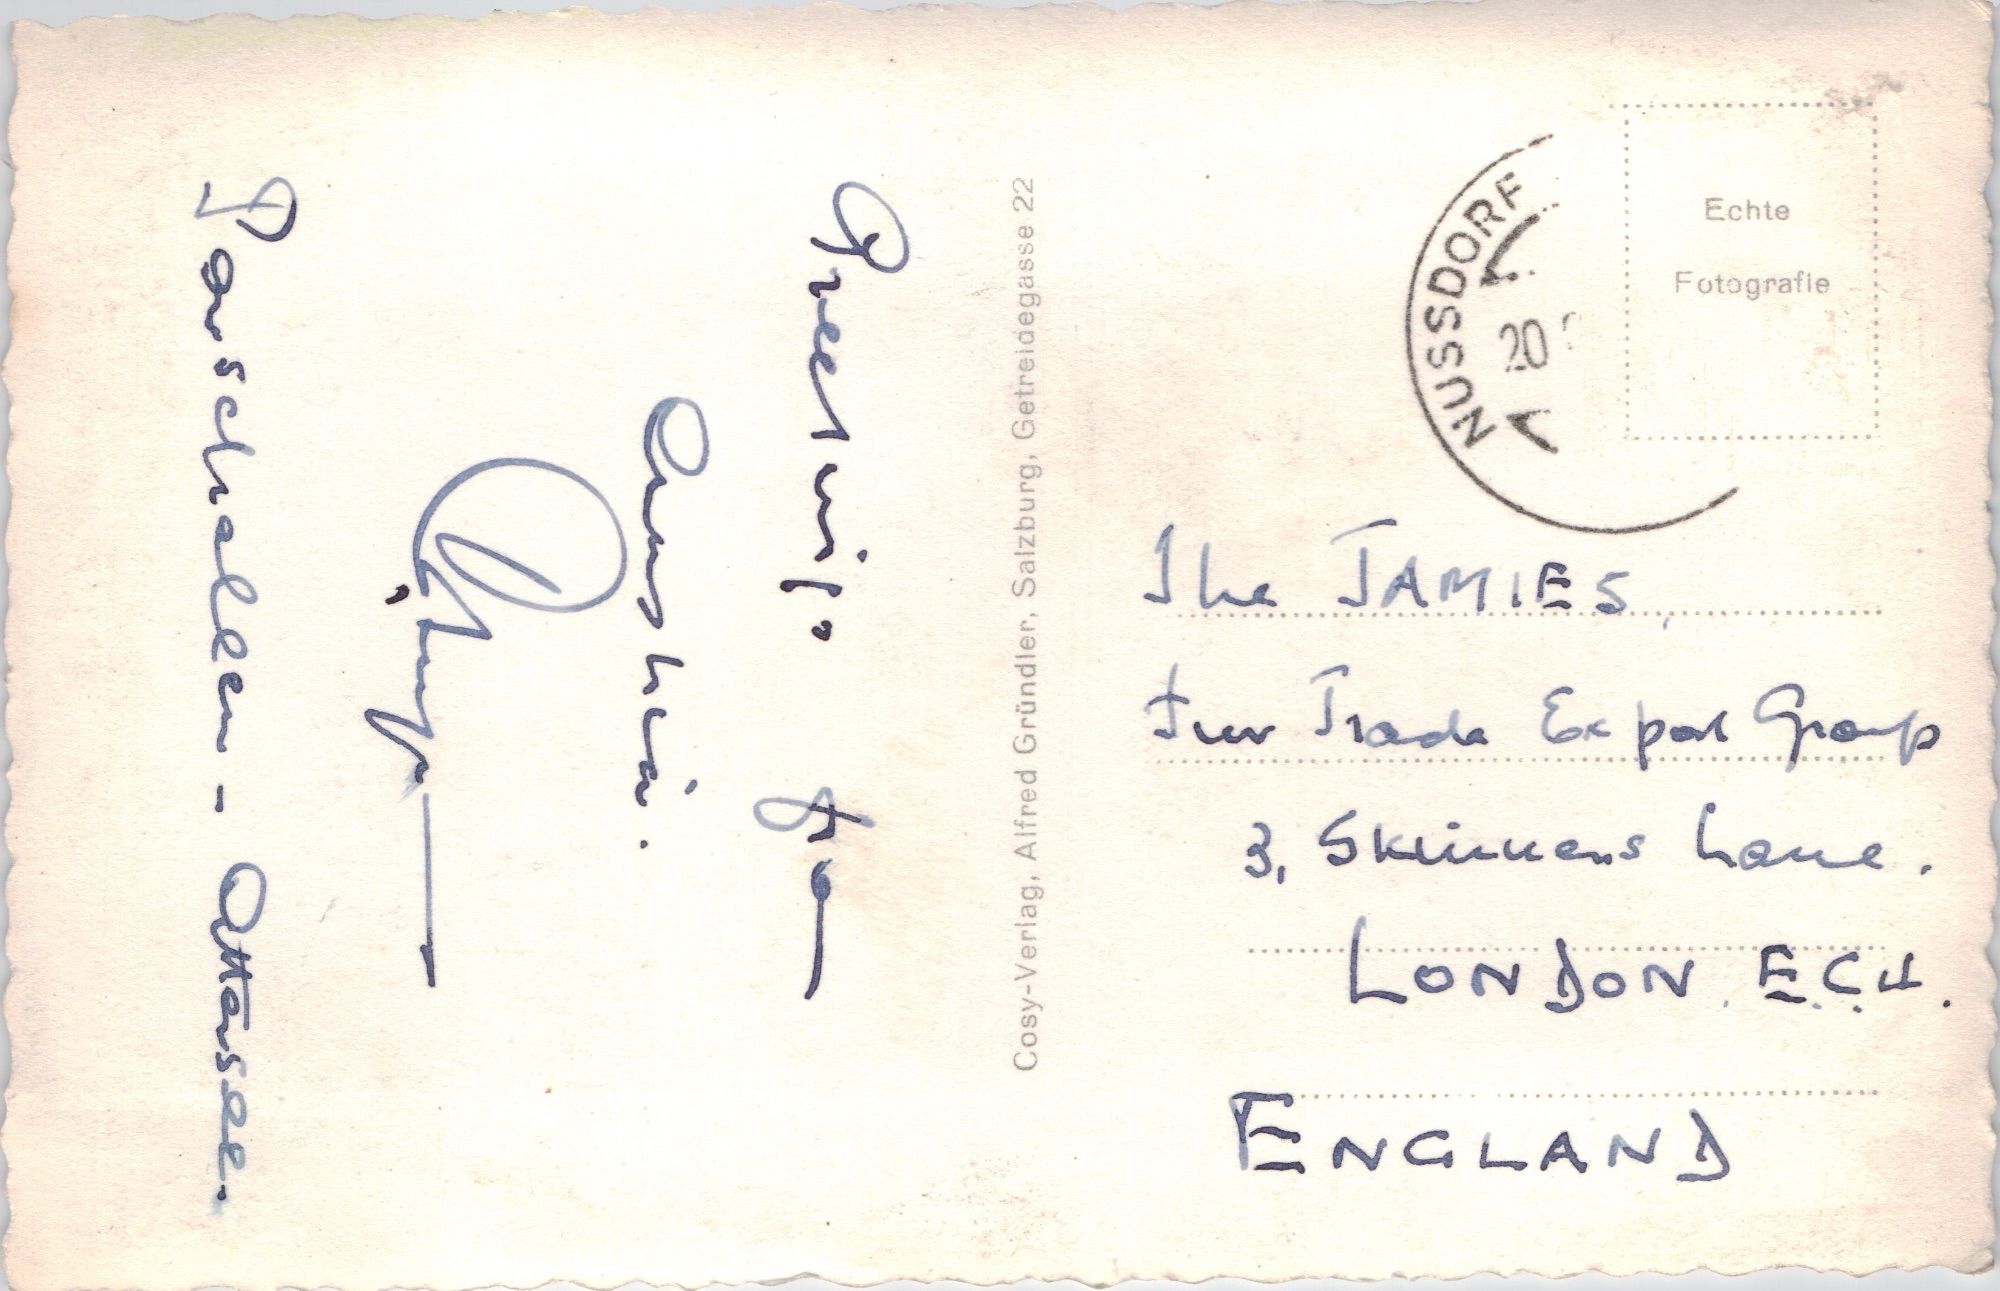 Greetings from
Austria.
Parschallen - Attersee.
Cosy-Verlag, Alfred Gründler, Salzburg, Getreidegasse 22
Echte
Fotografie
NUSSDORF
20
The JAMIES,
Fur Trade Export Group
3, Skinners Lane.
LONDON. E.C.4.
ENGLAND